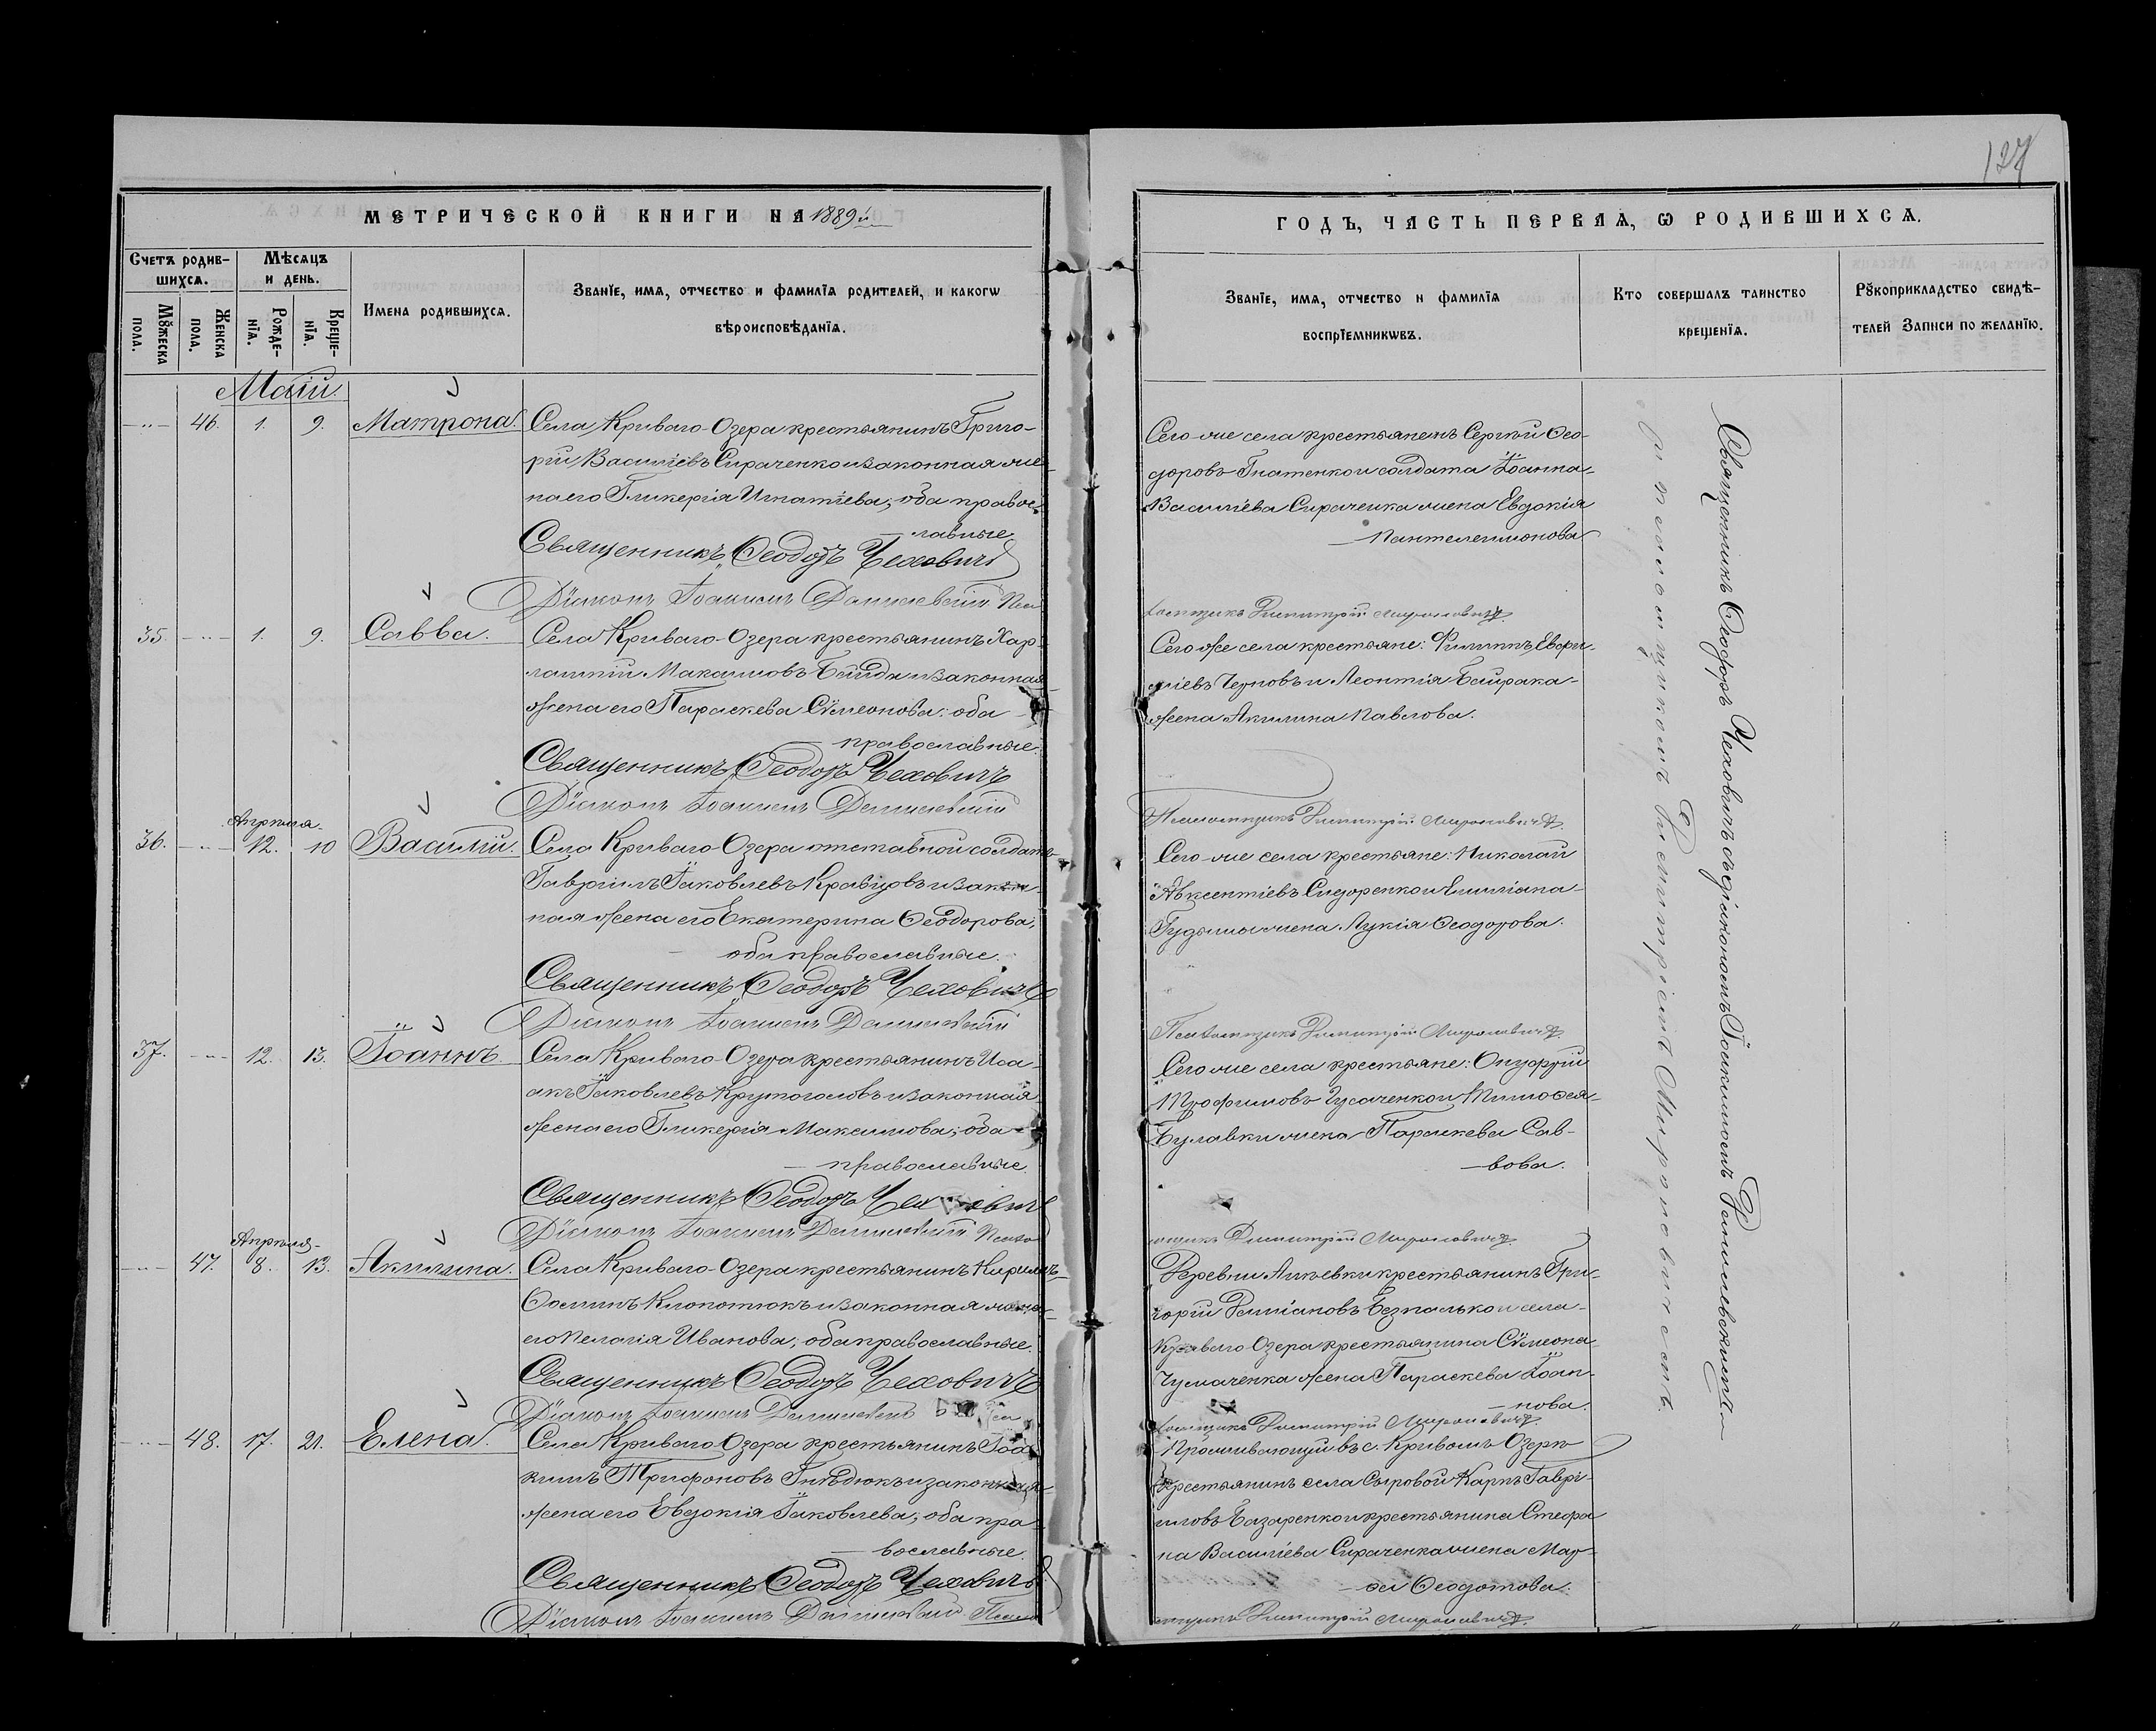 127
МЕТРИЧЕСКОЙ КНИГИ НА 1889й
ГОДЪ, ЧАСТЬ ПЕРВАЯ, Ѡ РОДИВШИХСѦ.
Счетъ родив-
шихсѧ.
Мѣсѧцъ
и день.
Мꙋжеска
пола.
Женска
пола.
Рожде-
нїѧ.
Креще-
нїѧ.
Имена родившихсѧ.
Званїе, имѧ, отчество и фамилїѧ родителей, и какогѡ
вѣроисповѣданїѧ.
Званїе, имѧ, отчество и фамилїѧ
воспрїемникѡвъ.
Кто совершалъ таинство
крещенїѧ.
Рꙋкоприкладство свидѣ-
телей записи по желанїю.
Маій.
46. 1. 9. Матрона.
Села Криваго-Озера крестьянинъ Григо-
рій Василіевъ Сираченко и законная же-
на его Гликерія Игнатіева, оба правос-
лавные.
Священникъ Ѳеодоръ Чеховичъ
Діаконъ Іоакимъ Данилевскій
Сего-же села крестьянинъ Сергій Ѳео-
доровъ Гнатенко и солдата Іоанна
Василіева Сираченка жена Евдокія
Пантелеимонова
Димитрій Мироновичъ
35. 1. 9. Савва.
Села Криваго-Озера крестьянинъ Хар-
лампій Максимовъ Байда и законная
жена его Параскева Сѵмеонова; оба
православные.
Священникъ Ѳеодоръ Чеховичъ
Діаконъ Іоакимъ Данилевскій
Сего же села крестьяне: Филиппъ Евфи-
міевъ Черновъ и Леонтія Байрака
жена Акилина Павлова.
Псаломщикъ Димитрій Мироновичъ
Апрѣля
36. 12. 10 Василій.
Села Криваго-Озера отставной солдатъ
Гавріилъ Іаковлевъ Кравцовъ и закон-
ная жена его Екатерина Ѳеодорова,
оба православные.
Священникъ Ѳеодоръ Чеховичъ
Діаконъ Іоакимъ Данилевскій
Сего-же села крестьяне: Николай
Авксентіевъ Сидоренко и Емиліана
Гудымы жена Лукія Ѳеодорова.
Псаломщикъ Димитрій Мироновичъ
37. 12. 13. Іоаннъ.
Села Криваго-Озера крестьянинъ Иса-
акъ Іаковлевъ Крутоголовъ и законная
жена его Гликерія Максимова; оба
православные.
Священникъ Ѳеодоръ Чеховичъ
Діаконъ Іоакимъ Данилевскій
Сего же села крестьяне: Онуфрій
Трофимовъ Гусаченко и Тимоѳея
Булавки жена Параскева Сав-
вова.
Димитрій Мироновичъ
Апрѣля
47. 8. 13. Акилина.
Села Криваго-Озера крестьянинъ Кириллъ
Ѳоминъ Клопотюкъ и законная жена
его Пелагія Иванова; оба православные.
Священникъ Ѳеодоръ Чеховичъ
Діаконъ Іоакимъ Данилевскій
Деревни крестьянинъ Гри-
горій Даміановъ Безпалько и села
Криваго-Озера крестьянина Сѵмеона
Чумаченка жена Параскева Іоан-
нова.
Димитрій Мироновичъ
48. 17. 21. Елена.
Села Криваго-Озера крестьянинъ Іоа-
кимъ Трифоновъ Гнѣдюкъ и законная
жена его Евдокія Іаковлева; оба пра-
вославные.
Священникъ Ѳеодоръ Чеховичъ
Діаконъ Іоакимъ Данилевскій
Проживающій въ с. Кривомъ-Озерѣ
крестьянинъ села Сыровой Карпъ Гаврі-
иловъ Базаренко и крестьянина Стефа-
на Василіева Сираченка жена Мар-
ѳа Ѳеодотова.
Димитрій Мироновичъ
Священникъ Ѳеодоръ Чеховичъ съ діакономъ Іоакимомъ Данилевскимъ
и псаломщикомъ Димитріемъ Мироновичемъ.